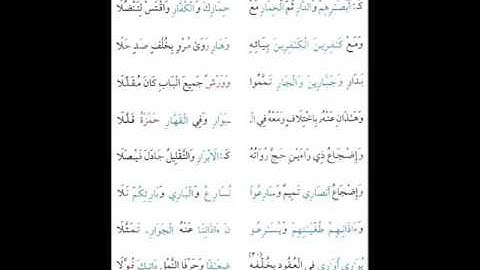 كَـ: أَبْصَٰرِهِمْ وَالدَّارِ ثُمَّ الْحِمَارِ مَعْ حِمَارِكَ وَالْكُفَّارِ وَاقْتَسْ لِتَنْضُلَا
وَمَعْ كَٰفِرِينَ الْكَٰفِرِينَ بِيَائِهِ وَهَارٍ رَوَىٰ مُرْوٍ بِخُلْفٍ صَدٍ حَلَا
بَدَارِ وَجَبَّارِينَ وَالْجَارِ تَمَّمُوا وَوَرْشٌ جَمِيعَ الْبَابِ كَانَ مُقَلِّلَا
وَهَٰذَانِ عَنْهُ بِاخْتِلَافٍ وَمَعْهُ فِي الْـ ـبَوَارِ وَفِي الْقَهَّارِ حَمْزَةُ قَلَّلَا
وَإِضْجَاعُ ذِي رَاءَيْنِ حَجَّ رُوَاتُهُ كَـ: الْأَبْرَارِ وَالتَّقْلِيلُ جَادَلَ فَيْصَلَا
وَإِضْجَاعُ أَنْصَارِي تَمِيمٌ وَسَارِعُوا نُسَارِعُ وَالْبَارِي وَبَارِئِكُمْ تَلَا
وَءَاذَانِهِمْ طُغْيَٰنِهِمْ وَيُسَٰرِعُو نَ ءَاذَانِنَا عَنْهُ الْجَوَارِ تَمَثَّلَا
يُوَارِي أُوَارِي فِي الْعُقُودِ بِخُلْفِهِ ضِعَٰفًا وَحَرْفَا النَّمْلِ ءَاتِيكَ قَوَّلَا